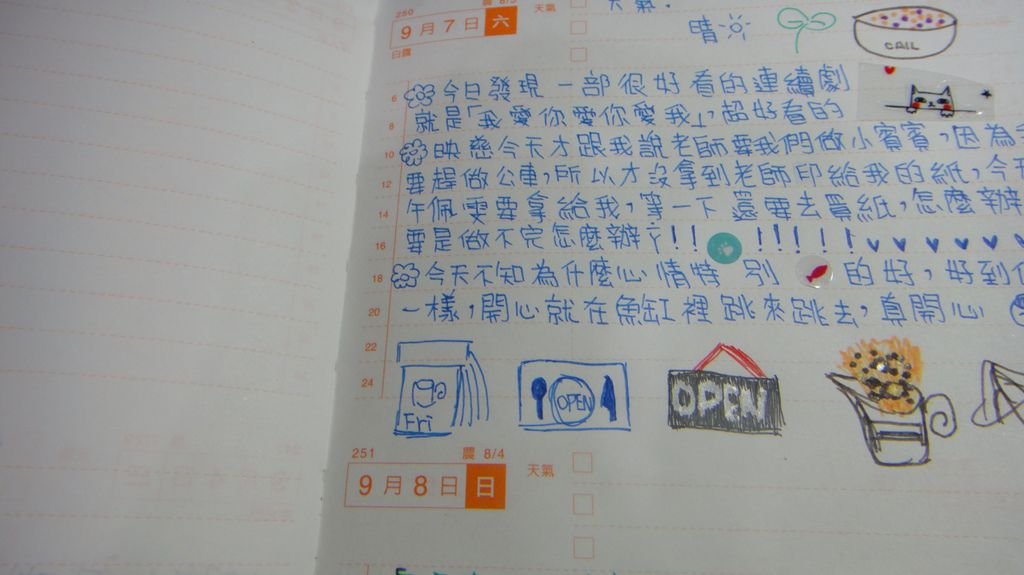 250
農 8/3
天氣
天氣:
9月7日 六
白露
晴
CAIL
6
8
10
12
14
16
18
20
22
24
今日發現一部很好看的連續劇
就是「我愛你愛你愛我」,超好看的
映慈今天才跟我說老師要我們做小賓賓,因為
要趕做公車,所以才沒拿到老師印給我的紙,今天
午佩雯要拿給我,等一下還要去買紙,怎麼辦
要是做不完怎麼辦?!! !!!!!!
今天不知為什麼心情特別的好,好到
一樣,開心就在魚缸裡跳來跳去,真開心
Fri
OPEN
OPEN
251
農 8/4
天氣
9月8日 日